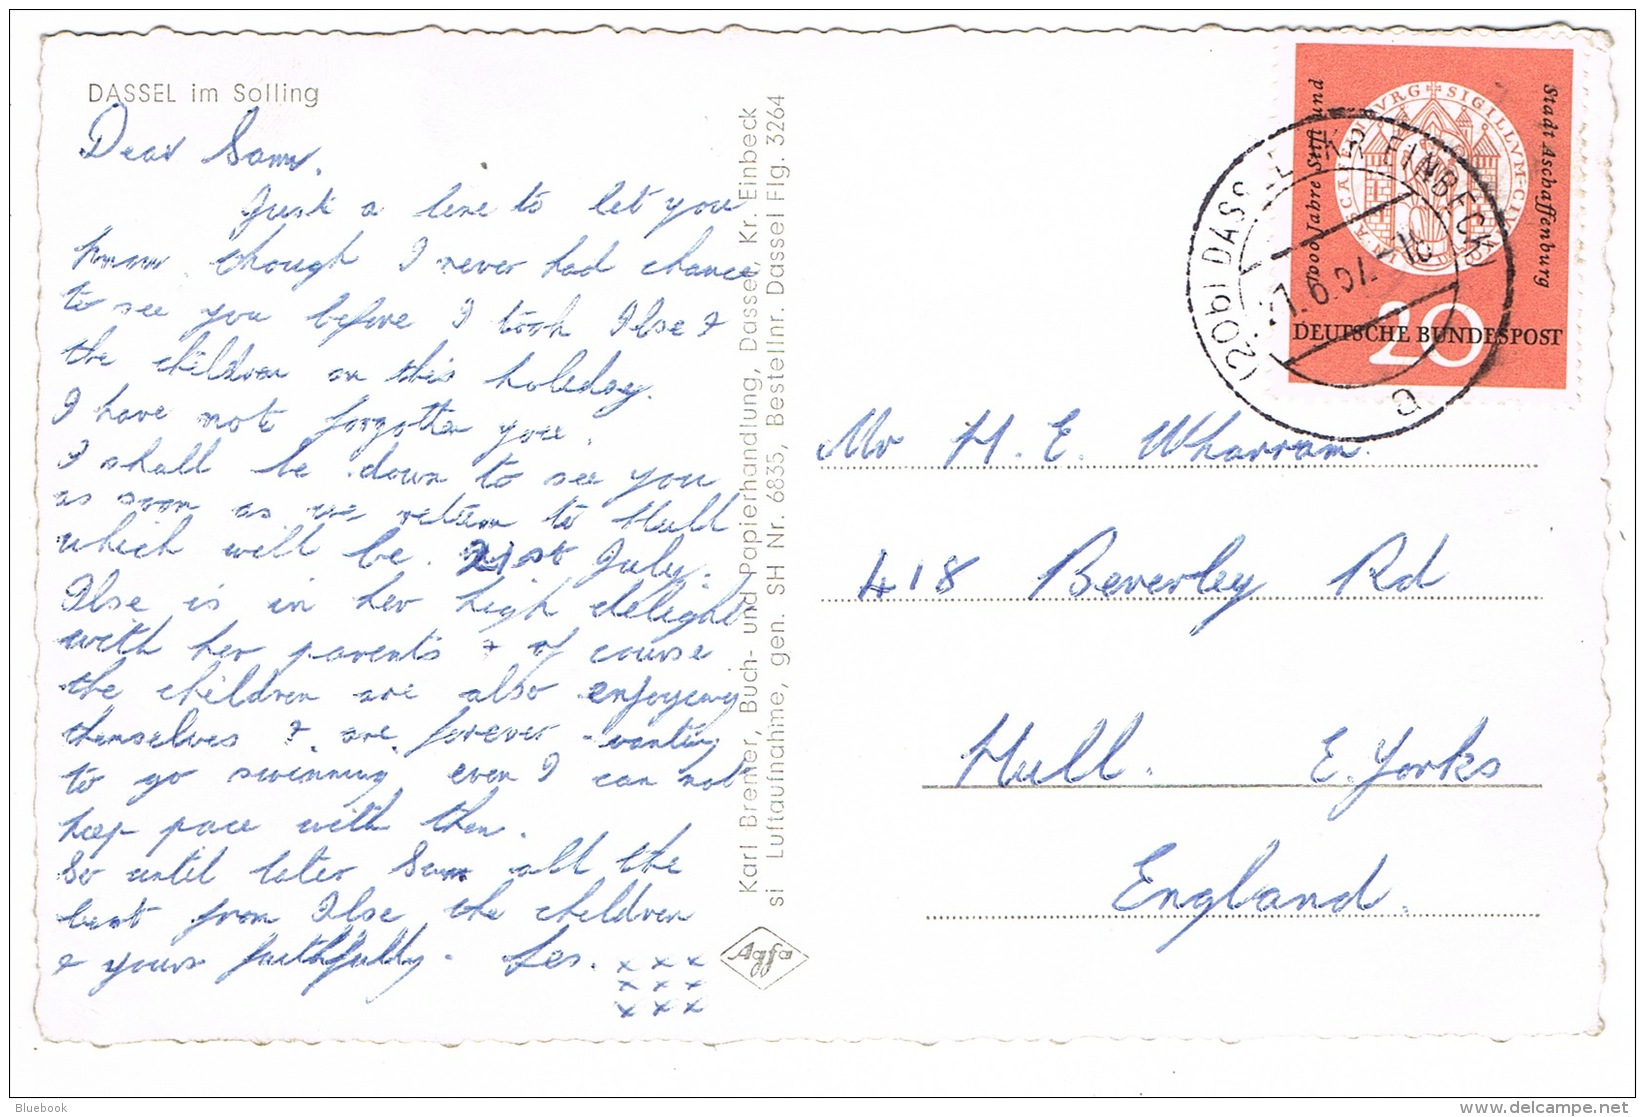 DASSEL im Solling
Dear Sam,
Just a line to let you
know though I never had chance
to see you before I took Ilse &
the children on this holiday.
I have not forgotten you.
I shall be down to see you
as soon as we return to Hull
which will be 21st July.
Ilse is in her high delight
with her parents & of course
the children are also enjoying
themselves & are forever wanting
to go swimming even I can not
keep pace with them.
So until later Sam all the
best from Ilse the children
& yours faithfully. Les. x x x
x x x
x x x
Karl Bremer, Buch- und Papierhandlung, Dassel, Kr. Einbeck
si Luftaufnahme, gen. SH Nr. 6835, Bestellnr. Dassel Flg. 3264
Agfa
1000 Jahre Stift und
Stadt Aschaffenburg
20
DEUTSCHE BUNDESPOST
(20b) DASSEL (KR EINBECK)
Mr H. E. Wharram.
418 Beverley Rd
Hull. E. Yorks
England.
Bluebook
www.delcampe.net